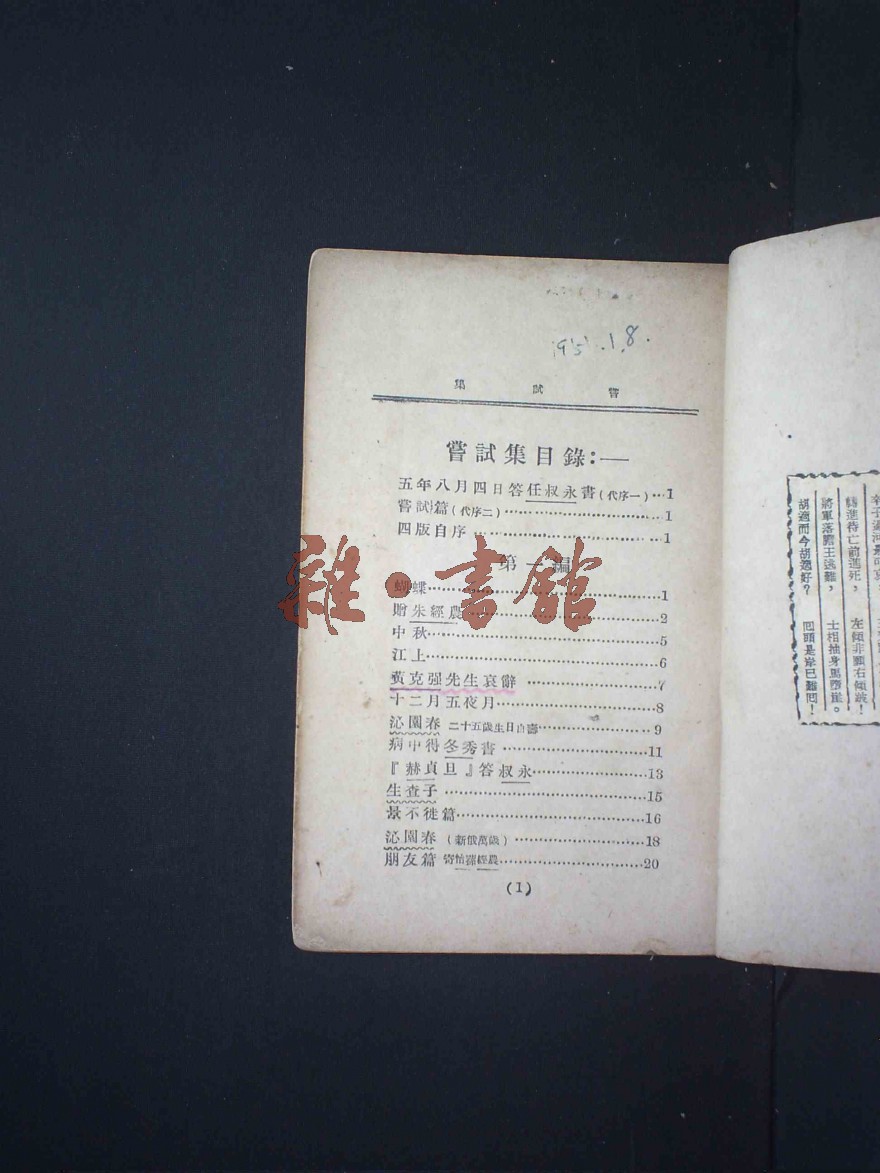 195 .1.8.
嘗 試 集
嘗試集目錄:—
五年八月四日答任叔永書(代序一)…1
嘗試篇(代序二)………………1
四版自序………………………1
第一編
蝴蝶………………………………1
贈朱經農…………………………2
中秋………………………………5
江上………………………………6
黃克强先生哀辭…………………7
十二月五夜月……………………8
沁園春 二十五歲生日自壽………9
病中得冬秀書……………………11
『赫貞旦』答叔永………………13
生查子……………………………15
景不徙篇…………………………16
沁園春(新俄萬歲)………………18
朋友篇 寄怡蓀經農………………20
(1)
雜·書館
轉進待亡前進死, 左傾非願右傾誠!
將軍落膽王逃難, 士相抽身馬墮崖。
胡適而今胡適好? 回頭是岸已難回!